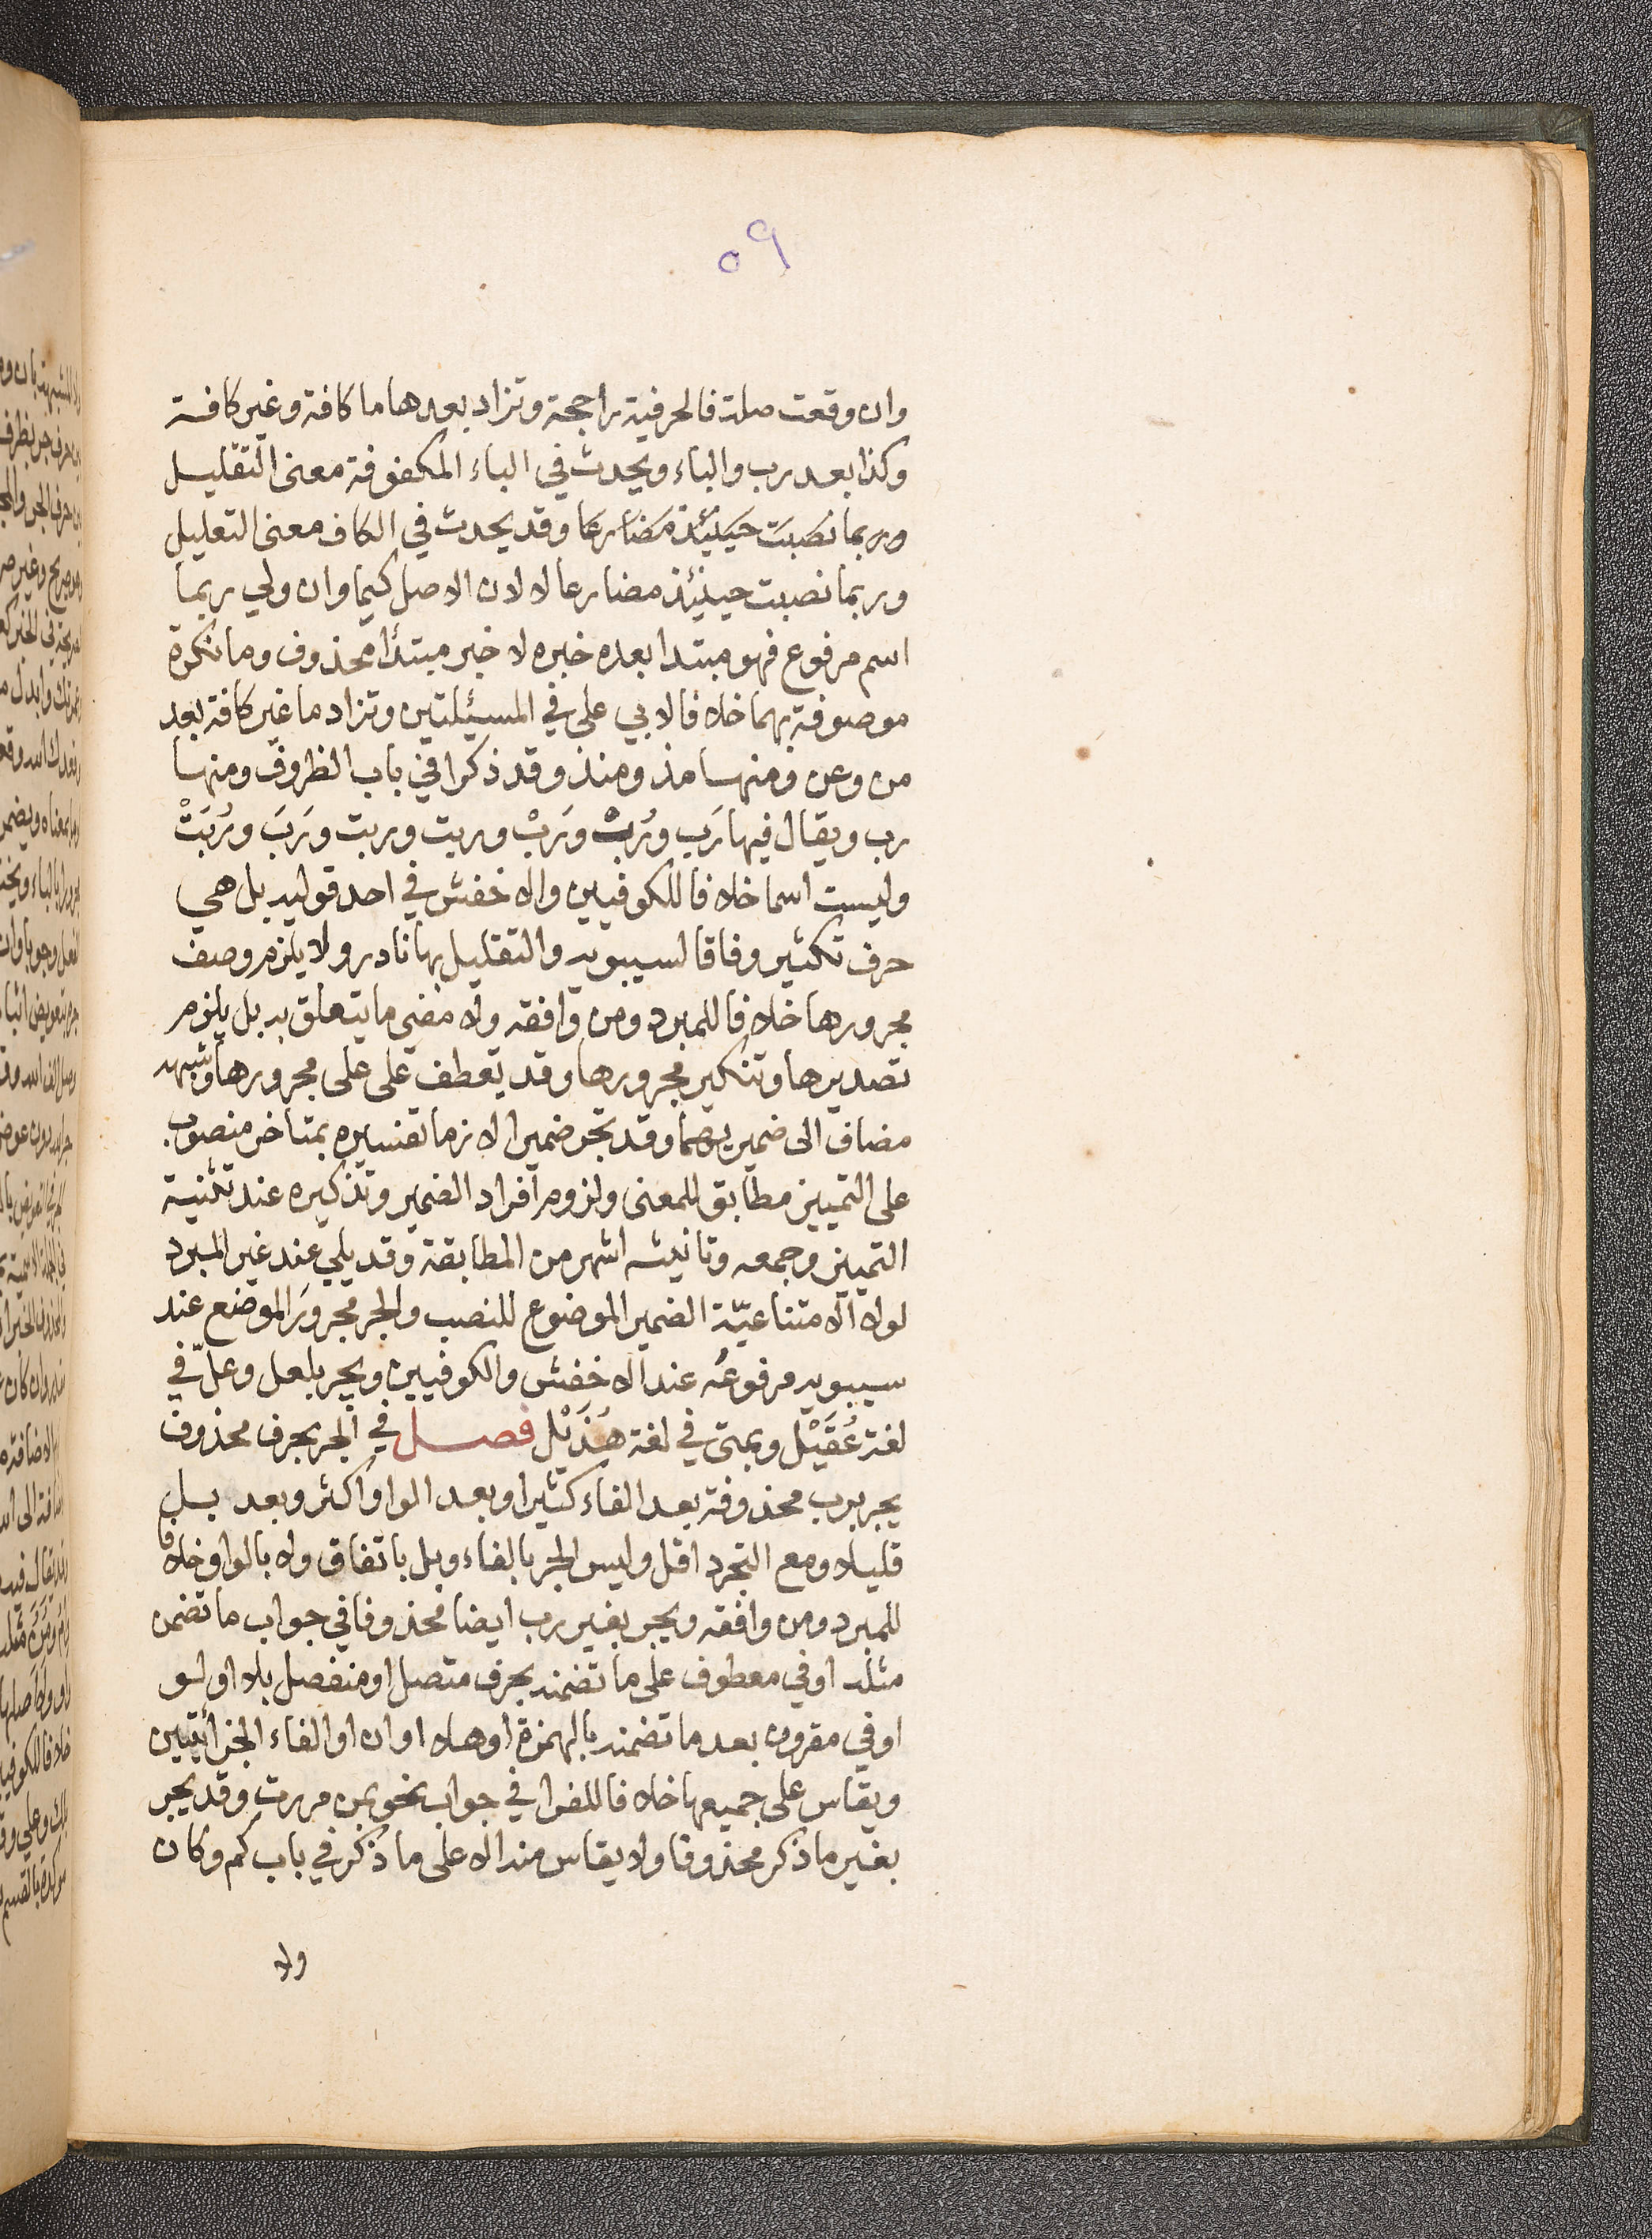 ٥٩
وان وقعت صلة فالحرفية راجحة وتزاد بعدها ما كافة وغير كافة
وكذا بعد رب والباء ويحدث في الباء المكفوفة معنى التقليل
وربما نصبت حينئذ مضارعا وقد يحدث في الكاف معنى التعليل
وربما نصبت حينئذ مضارعا لا لان الاصل كيما وان ولي ربما
اسم مرفوع فهو مبتدا بعده خبره لا خبر مبتدا محذوف وما نكرة
موصوفة بهما خلافا لابي على في المسئلتين وتزاد ما غير كافة بعد
من وعن ومنها مذ ومنذ وقد ذكرا في باب الظروف ومنها
رب ويقال فيها رَب ورُبْ ورَبْ وربت وربت ورَبَ ورُبَتْ
وليست اسما خلافا للكوفيين والاخفش في احد قوليه بل هي
حرف تكثير وفاقا لسيبويه والتقليل بها نادر ولا يلزم وصف
مجرورها خلافا للمبرد ومن وافقه ولا مضي ما يتعلق به بل يلزم
تصديرها وتنكير مجرورها وقد تعطف على على مجرورها وشبهه
مضاف الى ضميريهما وقد تجر ضميرا لازما تفسيره بمتاخر منصوب
على التمييز مطابق للمعنى ولزوم افراد الضمير وتذكيره عند تثنية
التمييز وجمعه وتانيثه اشهر من المطابقة وقد يلي عند غير المبرد
لولا الامتناعيّة الضمير الموضوع للنصب والجر مجرورَ الموضع عند
سيبويه مرفوعُه عند الاخفش والكوفيين ويجر بلعل وعلّ في
لغة عُقَيْل وبمتى في لغة هُذَيْل فصل في الجر بحرف محذوف
يجر برب محذوفة بعد الفاء كثيرا وبعد الواو اكثر وبعد بل
قليلا ومع التجرد اقل وليس الجر بالفاء وبل باتفاق ولا بالواو خلافا
للمبرد ومن وافقه ويجر بغير رب ايضا محذوفا في جواب ما تضمن
مثله او في معطوف على ما تضمنه بحرف متصل او منفصل بلا او لو
او في مقرون بعد ما تضمنه بالهمزة او هلا او ان او الفاء الجزائيتين
ويقاس على جميعها خلافا للفرا في جواب نحو بمن مررت وقد يجر
بغير ما ذكر محذوفا ولا يقاس منه الا على ما ذكر في باب كم وكان
ولا